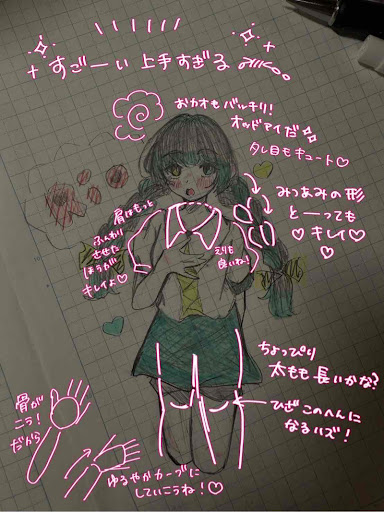 すごーい 上手すぎる
おカオもバッチリ!
オッドアイだ
タレ目もキュート♡
みつあみの形
とーっても
♡ キレイ♡
肩はもっと
ふんわり
させた
ほうが
キレイよ♡
えりも
良いね!
ちょっぴり
太もも長いかな?
ひざこのへんに
なるハズ!
骨が
こう!
だから
ゆるやかカーブに
していこうね!♡